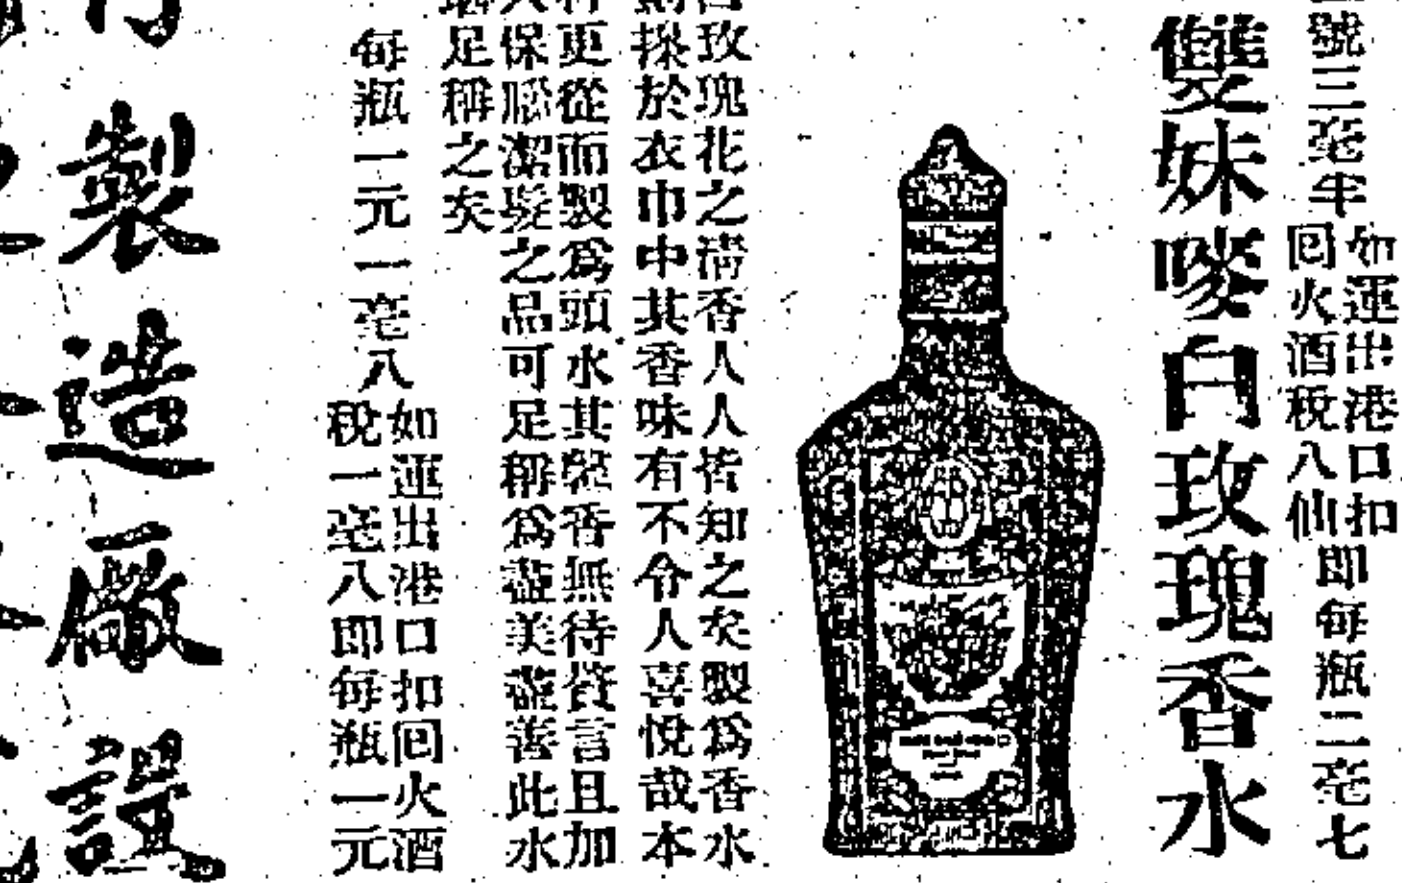 號三毫半
如運出港口扣
囘火酒稅八仙
即每瓶二毫七
雙妹嘜白玫瑰香水
玫瑰花之清香人人皆知之矣製爲香水
搽於衣巾中其香味有不令人喜悅哉本
更從而製爲頭水其馨香無待贅言且加
保腦潔髮之品可足稱爲盡美盡善此水
足稱之矣
每瓶一元一毫八
如運出港口扣囘火酒
稅一毫八即每瓶一元
製造廠設